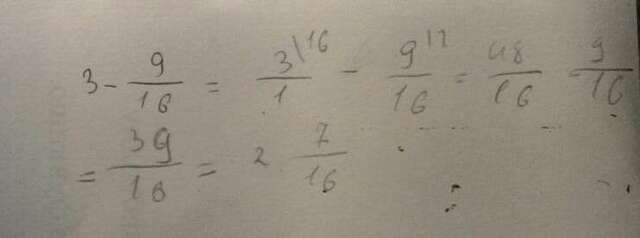 3 - 9/16 = 3\16/1 - 9|1/16 = 48/16 - 9/16
= 39/16 = 2 7/16